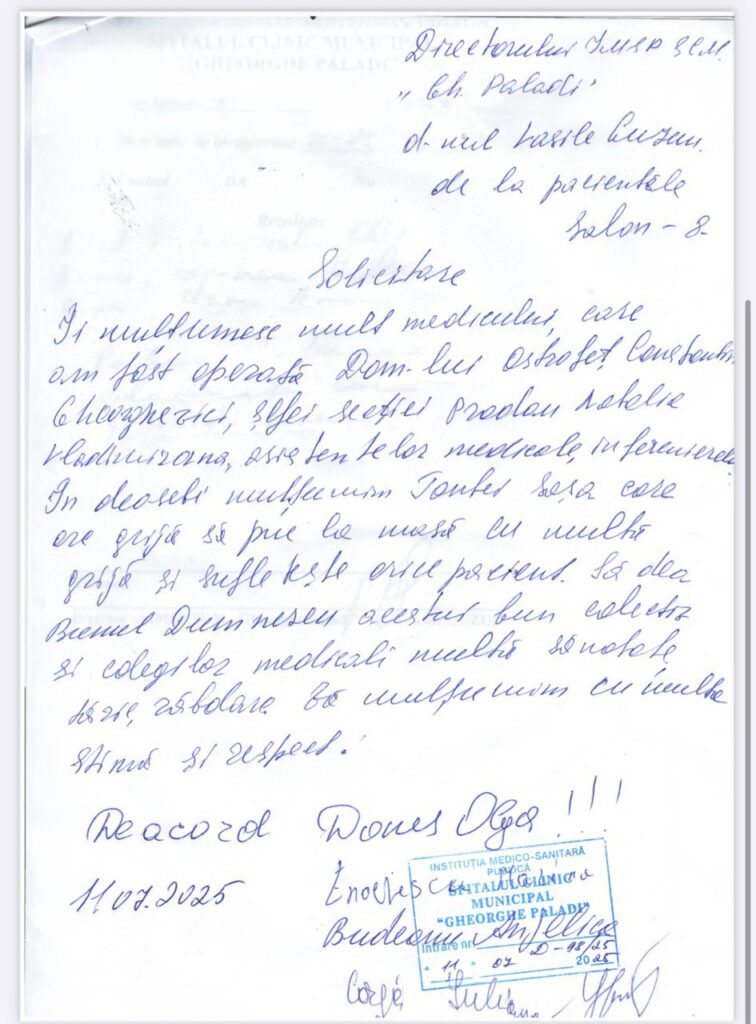 Directorului IMSP SCM.
„Gh. Paladi"
d-nul Vasile Guzun.
de la pacientele
Salon - 8.
Solicitare
Îi mulțumesc mult medicului, care
am fost operată Dom-lui Ostrofeț Constantin
Gheorghevici, șefei secției Prodan Natalia
Vladimirovna, asistentelor medicale, infermierele.
În deosebi mulțumim Tantei Sașa care
are grijă să pue la masă cu multă
grijă și suflet este orice pacient. Să dea
Bunul Dumnezeu acestui bun colectiv
și colegilor medicali multă sănatate
tărie, răbdare. Vă mulțumim cu multă
stimă și respect.
De acord Donus Olga!!!
11.07.2025
Enachescu Marina
Budeanu Anjelica
Corjă Iuliana
INSTITUȚIA MEDICO-SANITARĂ
PUBLICĂ
SPITALUL CLINIC
MUNICIPAL
"GHEORGHE PALADI"
Intrare nr. D-98/25
"11" 07 2025
SPITALUL CLINIC MUNICIPAL
"GHEORGHE PALADI"